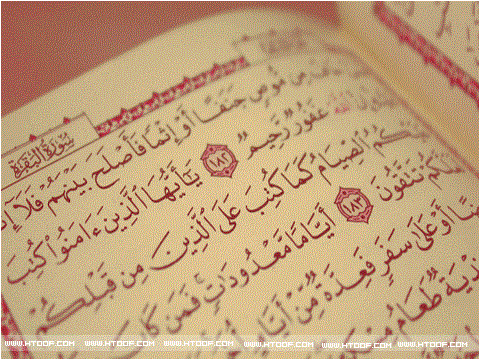 سُورَةُ البَقَرَةِ
مِن مُّوصٍ جَنَفًا أَوْ إِثْمًا فَأَصْلَحَ بَيْنَهُمْ فَلَآ
غَفُورٌ رَّحِيمٌ ١٨٢ يَٰٓأَيُّهَا ٱلَّذِينَ ءَامَنُوا۟ كُتِبَ
ٱلصِّيَامُ كَمَا كُتِبَ عَلَى ٱلَّذِينَ مِن قَبْلِكُمْ
تَتَّقُونَ ١٨٣ أَيَّامًا مَّعْدُودَٰتٍ فَمَن
أَوْ عَلَىٰ سَفَرٍ فَعِدَّةٌ مِّنْ
طَعَامُ
WWW.HTOOF.COM WWW.HTOOF.COM WWW.HTOOF.COM WWW.HTOOF.COM WWW.HTOOF.COM WWW.HTOOF.COM